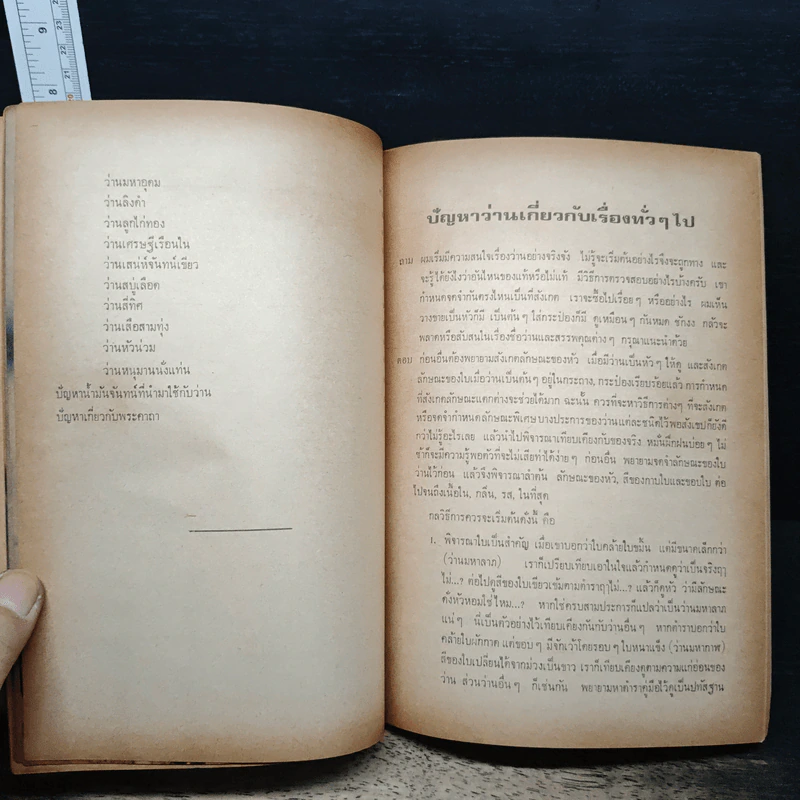 ว่านมหาอุดม
ว่านลิงดำ
ว่านลูกไก่ทอง
ว่านเศรษฐีเรือนใน
ว่านเสน่ห์จันทน์เขียว
ว่านสบู่เลือด
ว่านสี่ทิศ
ว่านเสือสามทุ่ง
ว่านหัวน่วม
ว่านหนุมานนั่งแท่น
ปัญหาน้ำมันจันทน์ที่นำมาใช้กับว่าน
ปัญหาเกี่ยวกับพระคาถา
ปัญหาว่านเกี่ยวกับเรื่องทั่วๆ ไป
ถาม ผมเริ่มมีความสนใจเรื่องว่านอย่างจริงจัง ไม่รู้จะเริ่มต้นอย่างไรจึงจะถูกทาง และ
จะรู้ได้ยังไงว่าอันไหนของแท้หรือไม่แท้ มีวิธีการตรวจสอบอย่างไรบ้างครับ เขา
กำหนดจดจำกันตรงไหนเป็นที่สังเกต เราจะซื้อไปเรื่อยๆ หรืออย่างไร ผมเห็น
วางขายเป็นหัวก็มี เป็นต้นๆ ใส่กระป๋องก็มี ดูเหมือนๆ กันหมด ชักงง กลัวจะ
พลาดหรือสับสนในเรื่องชื่อว่านและสรรพคุณต่างๆ กรุณาแนะนำด้วย
ตอบ ก่อนอื่นต้องพยายามสังเกตลักษณะของหัว เมื่อมีว่านเป็นหัวๆ ให้ดู และสังเกต
ลักษณะของใบเมื่อว่านเป็นต้นๆ อยู่ในกระถาง, กระป๋องเรียบร้อยแล้ว การกำหนด
ที่สังเกตลักษณะแตกต่างจะช่วยได้มาก ฉะนั้น ควรที่จะหาวิธีการต่างๆ ที่จะสังเกต
หรือจดจำกำหนดลักษณะพิเศษบางประการของว่านแต่ละชนิดไว้พอสังเขปก็ยังดี
กว่าไม่รู้อะไรเลย แล้วนำไปพิจารณาเทียบเคียงกับของจริง หมั่นฝึกฝนบ่อยๆ ไม่
ช้าก็จะมีความรู้พอตัวที่จะไม่เสียท่าได้ง่ายๆ ก่อนอื่น พยายามจดจำลักษณะของใบ
ว่านไว้ก่อน แล้วจึงพิจารณาลำต้น ลักษณะของหัว, สีของกาบใบและขอบใบ ต่อ
ไปจนถึงเนื้อใน, กลิ่น, รส, ในที่สุด
กลวิธีการควรจะเริ่มต้นดังนี้ คือ
๑. พิจารณาใบเป็นสำคัญ เมื่อเขาบอกว่าใบคล้ายใบขมิ้น แต่มีขนาดเล็กกว่า
(ว่านมหาลาภ) เราก็เปรียบเทียบเอาในใจแล้วกำหนดดูว่าเป็นจริงฤา
ไม่...? ต่อไปดูสีของใบเขียวเข้มตามตำราฤาไม่...? แล้วก็ดูหัว ว่ามีลักษณะ
ดั่งหัวหอมใช่ไหม...? หากใช่ครบสามประการก็แปลว่าเป็นว่านมหาลาภ
แน่ๆ นี่เป็นตัวอย่างไว้เทียบเคียงกันกับว่านอื่นๆ หากตำราบอกว่าใบ
คล้ายใบผักกาด แต่ขอบๆ มีจักเว้าโดยรอบๆ ใบหนาแข็ง (ว่านมหากาฬ)
สีของใบเปลี่ยนได้จากม่วงเป็นขาว เราก็เทียบเคียงดูตามความแก่อ่อนของ
ว่าน ส่วนว่านอื่นๆ ก็เช่นกัน พยายามหาตำราคู่มือไว้ดูเป็นปทัสฐาน